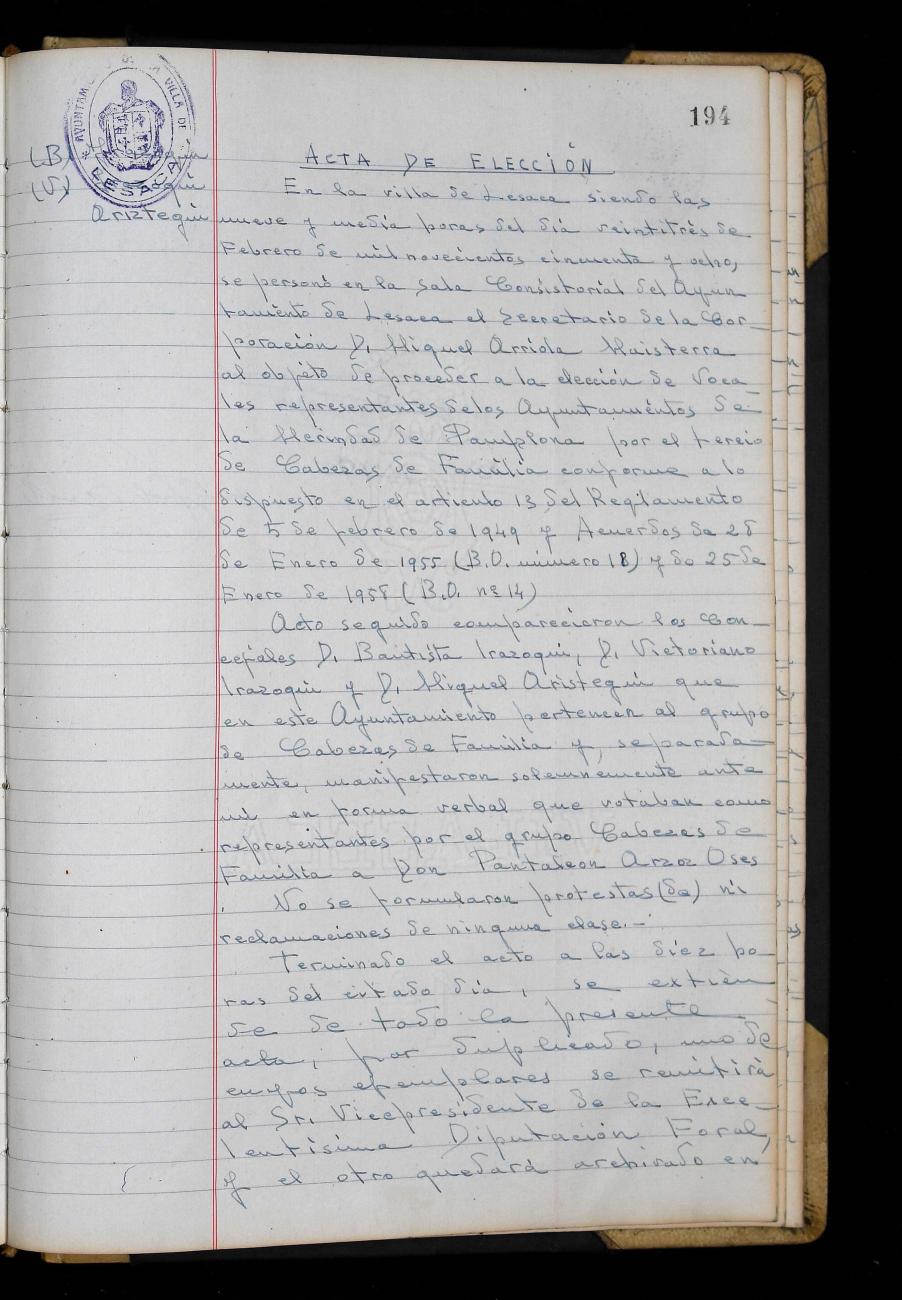 194
AYUNTAM DE LA VILLA DE
LESACA
(B)
(V)
Ariztegui
ACTA DE ELECCIÓN
En la villa de Lesaca siendo las
nueve y media horas del día veintitrés de
Febrero de mil novecientos cincuenta y ocho,
se personó en la Sala Consistorial del Ayun
tamiento de Lesaca el Secretario de la Cor-
poración D. Miguel Arriola Maisterra
al objeto de proceder a la elección de Voca
les representantes de los Ayuntamientos de
la Merindad de Pamplona por el tercio
de Cabezas de Familia conforme a lo
dispuesto en el artículo 13 del Reglamento
de 5 de febrero de 1949 y Acuerdos de 28
de Enero de 1955 (B.O. número 18) y de 25 de
Enero de 1958 (B.O. nº 14)
Acto seguido comparecieron los Con-
cejales D. Bautista Irazoqui, D. Victoriano
Irazoqui y D. Miguel Aristegui que
en este Ayuntamiento pertencen al grupo
de Cabezas de Familia y, separada-
mente, manifestaron solemnemente ante
mi en forma verbal que votaban como
representantes por el grupo Cabezas de
Familia a Don Pantaleon Arzoz Oses
. No se formularon protestas (de) ni
reclamaciones de ninguna clase.-
Terminado el acto a las diez ho-
ras del citado día, se extien
de de todo la presente
acta, por duplicado, uno de
cuyos ejemplares se remitirá
al Sr. Vicepresidente de la Exce-
lentísima Diputación Foral,
y el otro quedará archivado en